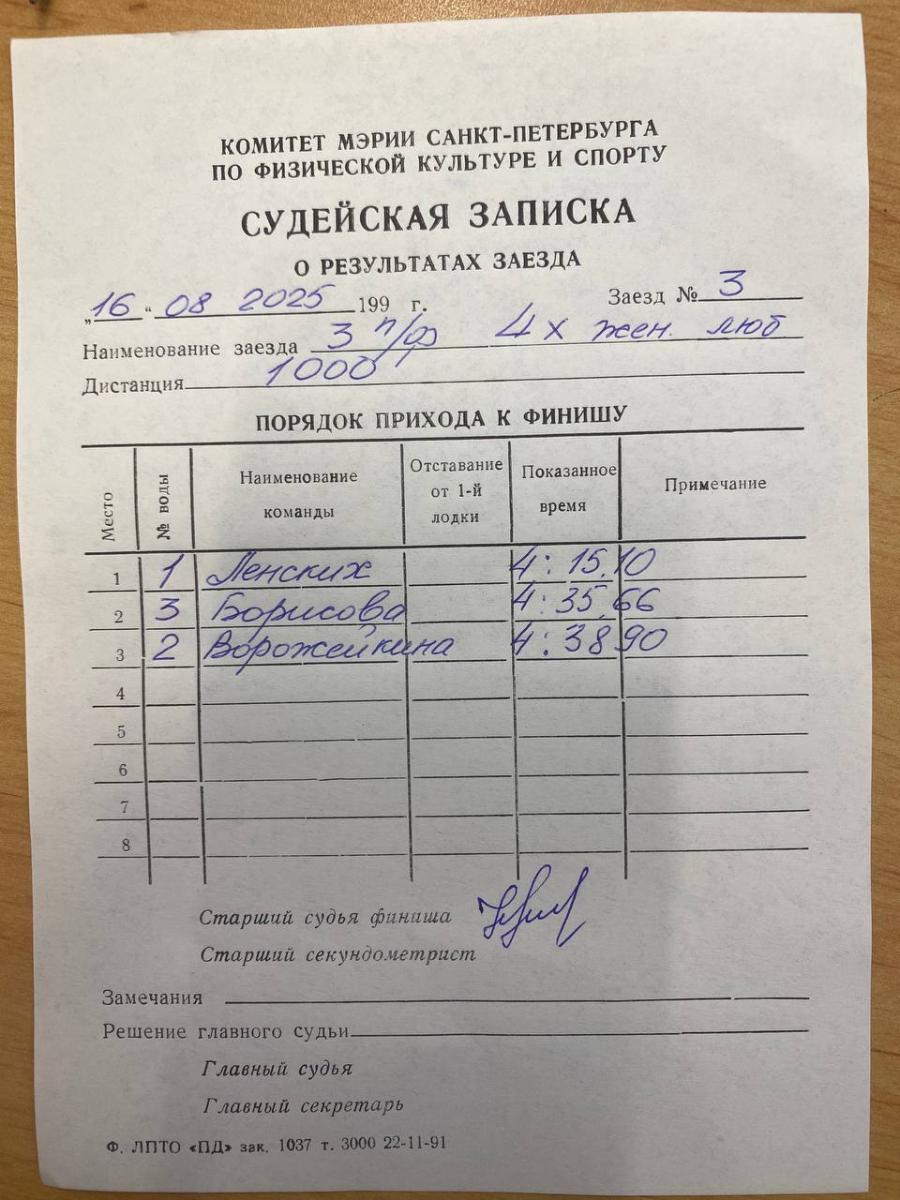 КОМИТЕТ МЭРИИ САНКТ-ПЕТЕРБУРГА
ПО ФИЗИЧЕСКОЙ КУЛЬТУРЕ И СПОРТУ
СУДЕЙСКАЯ ЗАПИСКА
О РЕЗУЛЬТАТАХ ЗАЕЗДА
„16“ 08 2025 199 г. Заезд № 3
Наименование заезда 3 п/ф 4х жен. люб
Дистанция 1000
ПОРЯДОК ПРИХОДА К ФИНИШУ
Место № воды Наименование команды Отставание от 1-й лодки Показанное время Примечание
1 1 Ленских 4:15,10
2 3 Борисова 4:35,66
3 2 Ворожейкина 4:38,90
4
5
6
7
8
Старший судья финиша
Старший секундометрист
Замечания
Решение главного судьи
Главный судья
Главный секретарь
Ф. ЛПТО «ПД» зак. 1037 т. 3000 22-11-91